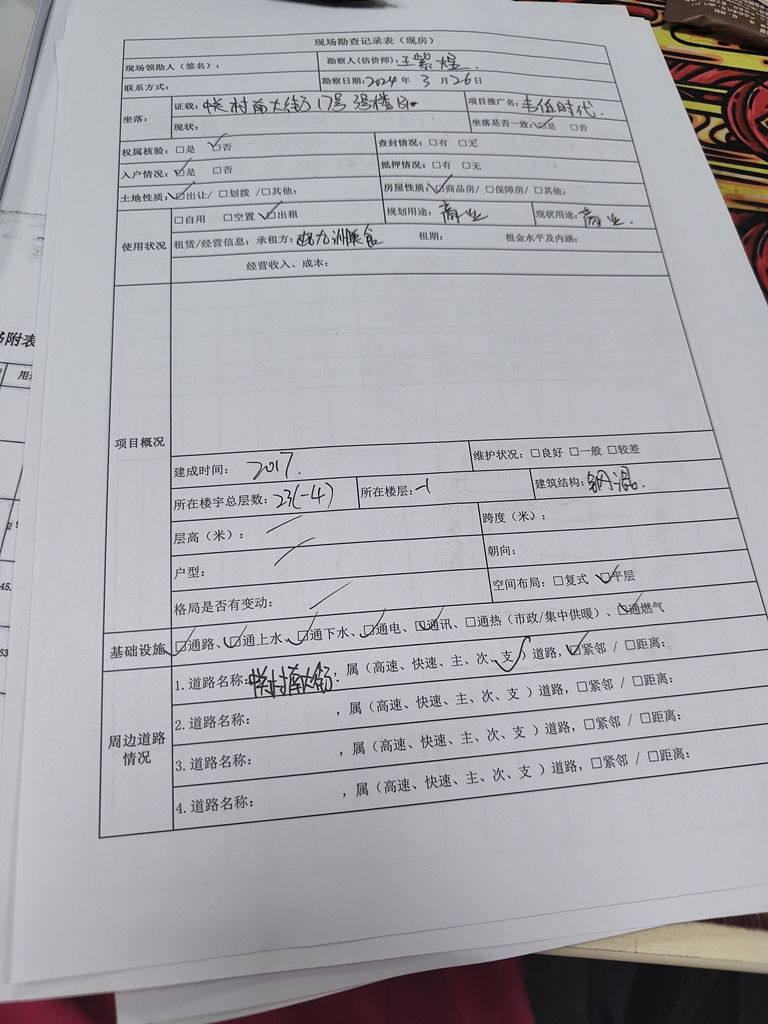 现场勘查记录表（现房）
现场领勘人（签名）： 勘察人(估价师)：王紫煜.
联系方式： 勘察日期：2024 年 3 月 26 日
坐落： 证载： 村南大街17号 3号楼 项目推广名： 值时代.
现状： 坐落是否一致：☑是 □否
权属核验：□是 ☑否 查封情况：□有 □无
入户情况：☑是 □否 抵押情况：□有 □无
土地性质：☑出让/ □划拨 /□其他： 房屋性质：☑商品房/ □保障房/ □其他：
使用状况 □自用 □空置 ☑出租 规划用途：商业 现状用途：商业.
租赁/经营信息：承租方： 九洲美食 租期： 租金水平及内涵：
经营收入、成本：
项目概况
建成时间： 2017. 维护状况：□良好 □一般 □较差
所在楼宇总层数：23(-4) 所在楼层：-1 建筑结构：钢混.
层高（米）： 跨度（米）：
户型： 朝向：
格局是否有变动： 空间布局：□复式 ☑平层
基础设施 ☑通路、☑通上水、☑通下水、☑通电、☑通讯、□通热（市政/集中供暖）、☑通燃气
周边道路情况 1.道路名称： 村南大街，属（高速、快速、主、次、支✓）道路，☑紧邻 / □距离：
2.道路名称： ，属（高速、快速、主、次、支 ）道路，□紧邻 / □距离：
3.道路名称： ，属（高速、快速、主、次、支 ）道路，□紧邻 / □距离：
4.道路名称： ，属（高速、快速、主、次、支 ）道路，□紧邻 / □距离：
附表